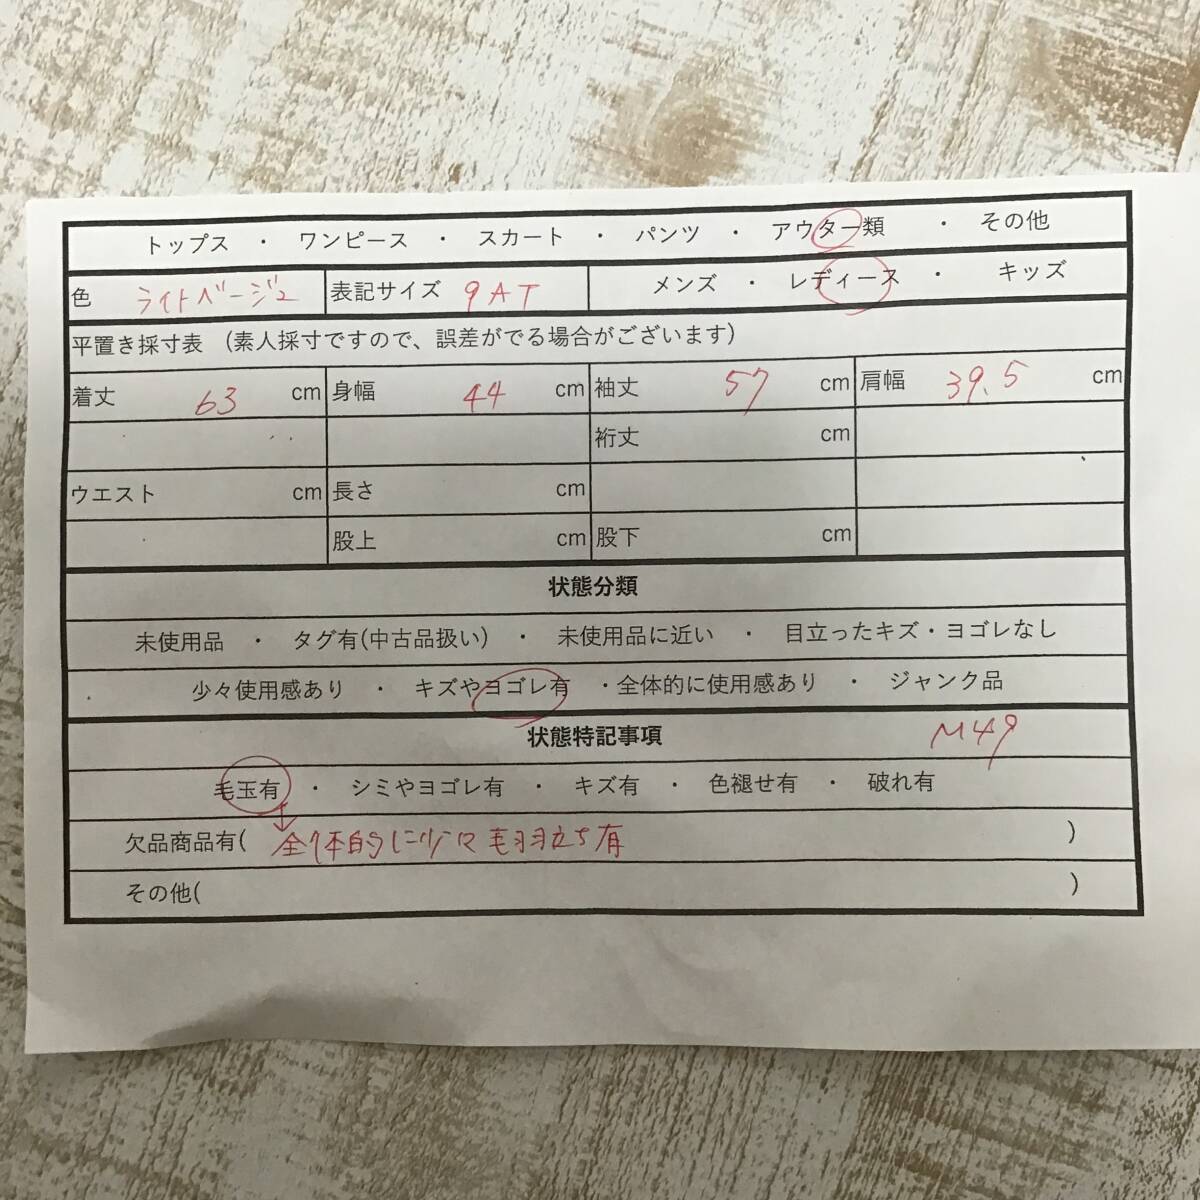 トップス ・ ワンピース ・ スカート ・ パンツ ・ アウター類 ・ その他
色 ライトベージュ 表記サイズ 9AT メンズ ・ レディース ・ キッズ
平置き採寸表 (素人採寸ですので、誤差がでる場合がございます)
着丈 63 cm 身幅 44 cm 袖丈 57 cm 肩幅 39.5 cm
裄丈 cm
ウエスト cm 長さ cm
股上 cm 股下 cm
状態分類
未使用品 ・ タグ有(中古品扱い) ・ 未使用品に近い ・ 目立ったキズ・ヨゴレなし
少々使用感あり ・ キズやヨゴレ有 ・全体的に使用感あり ・ ジャンク品
状態特記事項 M49
毛玉有 ・ シミやヨゴレ有 ・ キズ有 ・ 色褪せ有 ・ 破れ有
欠品商品有( 全体的に少々毛羽立ち有 )
その他( )